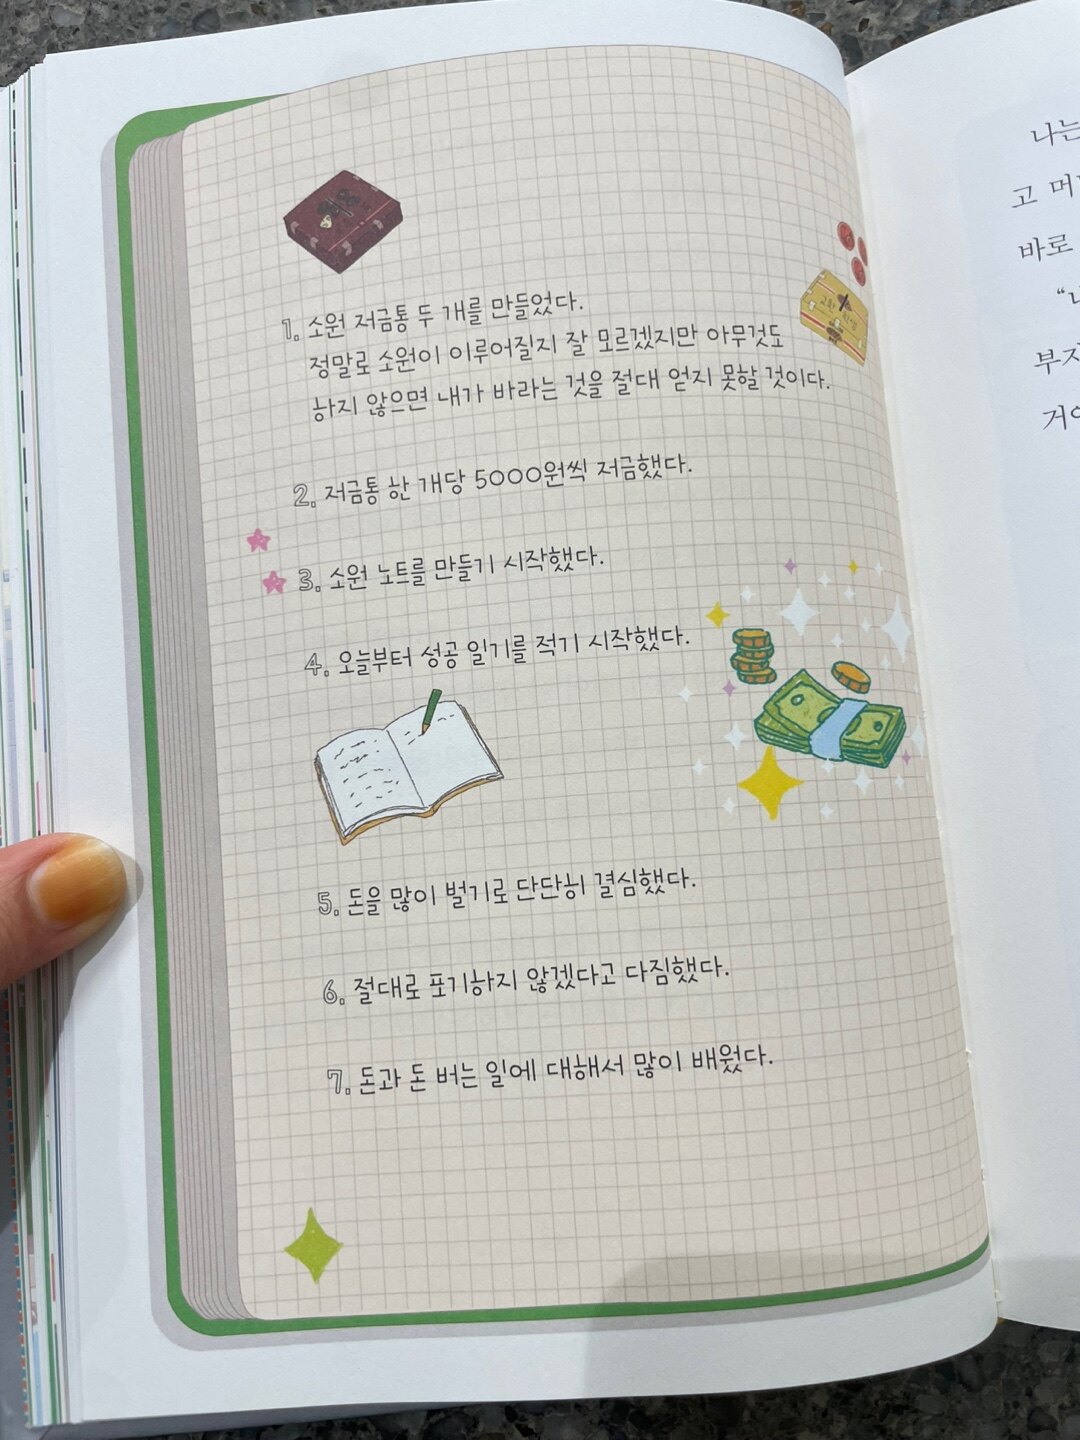 1. 소원 저금통 두 개를 만들었다.
정말로 소원이 이루어질지 잘 모르겠지만 아무것도
하지 않으면 내가 바라는 것을 절대 얻지 못할 것이다.
2. 저금통 한 개당 5000원씩 저금했다.
3. 소원 노트를 만들기 시작했다.
4. 오늘부터 성공 일기를 적기 시작했다.
5. 돈을 많이 벌기로 단단히 결심했다.
6. 절대로 포기하지 않겠다고 다짐했다.
7. 돈과 돈 버는 일에 대해서 많이 배웠다.
나는
고 머
바로
부자
거야